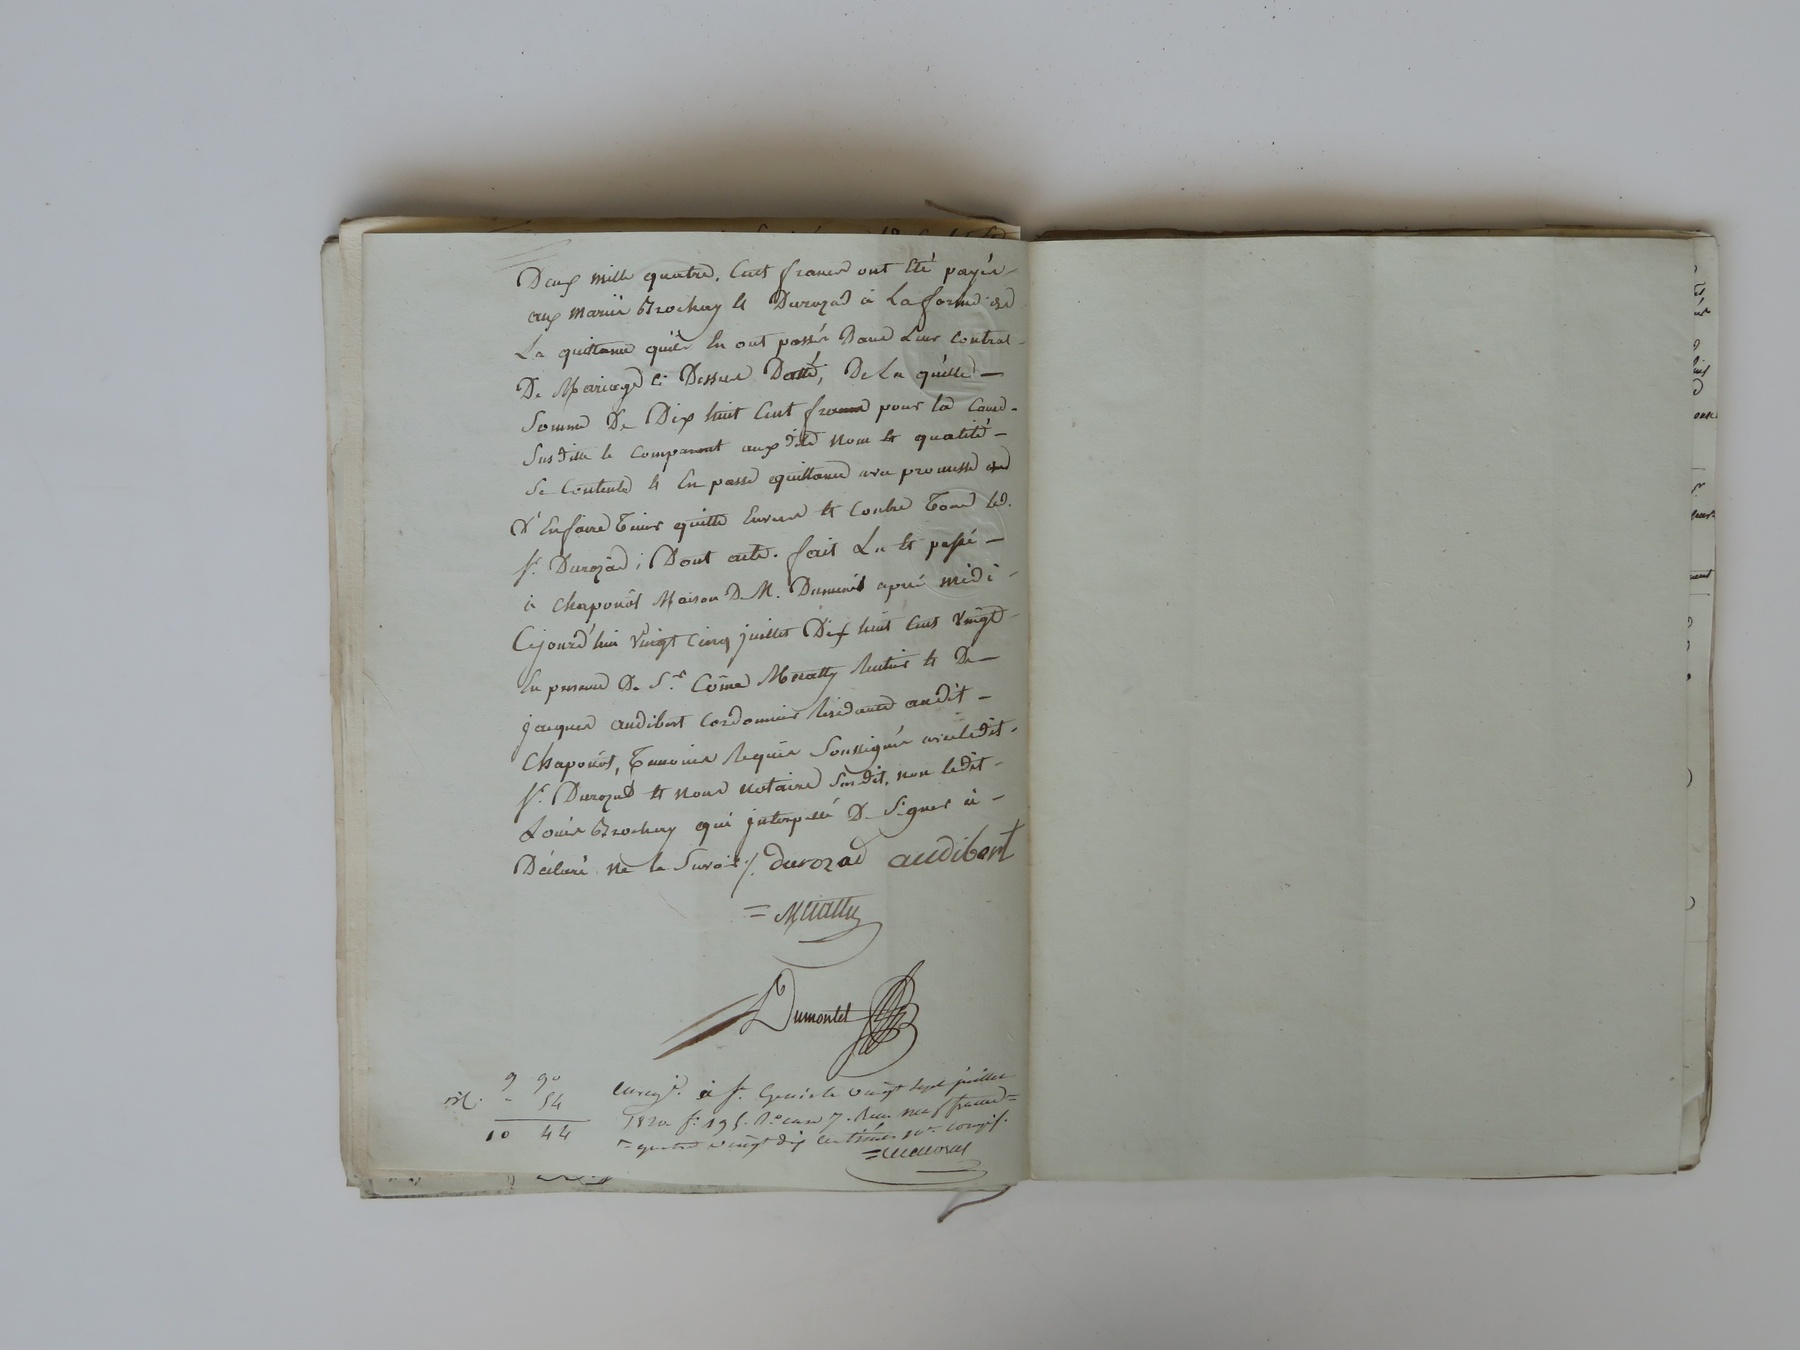 Deux mille quatre Cent francs ont été payés
aux mariés Brochay et Durozad à La forme de
La quittance qu'ils En ont passée Dans Leur contrat
De Mariage Ci Dessus Datté, De La quelle
Somme De Dix huit Cent francs pour la Cause
Susditte le Comparant aux dits nom et qualité
Se Contente et En passe quittance avec promesse
D'En faire Tenir quitte Envers et Contre Tous led.
Sr. Durozad ; Dont acte. fait Lu et passé
à Chaponost Maison De M. après midi
Cejourd'hui Vingt Cinq juillet Dix huit Cent Vingt
En présence De Sr. Côme Meatty Rentier et De
jacques audibert Cordonnier Résidants audit
Chaponost, Temoins Requis Soussignés avec ledit
Sr. Durozad et nous notaire Susdit, non ledit
Louis Brochay qui jnterpellé De Signer à
Déclaré Ne le Savoir ./. durozad audibert
= Meatty
Dumontet
9 90
- 54
10 44
Enregt. à St. Genis le vingt sept juillet
1820 fo. 195. Ro. case 7. Reçu neuf francs
quatre vingt dix centimes 10e. Compris.